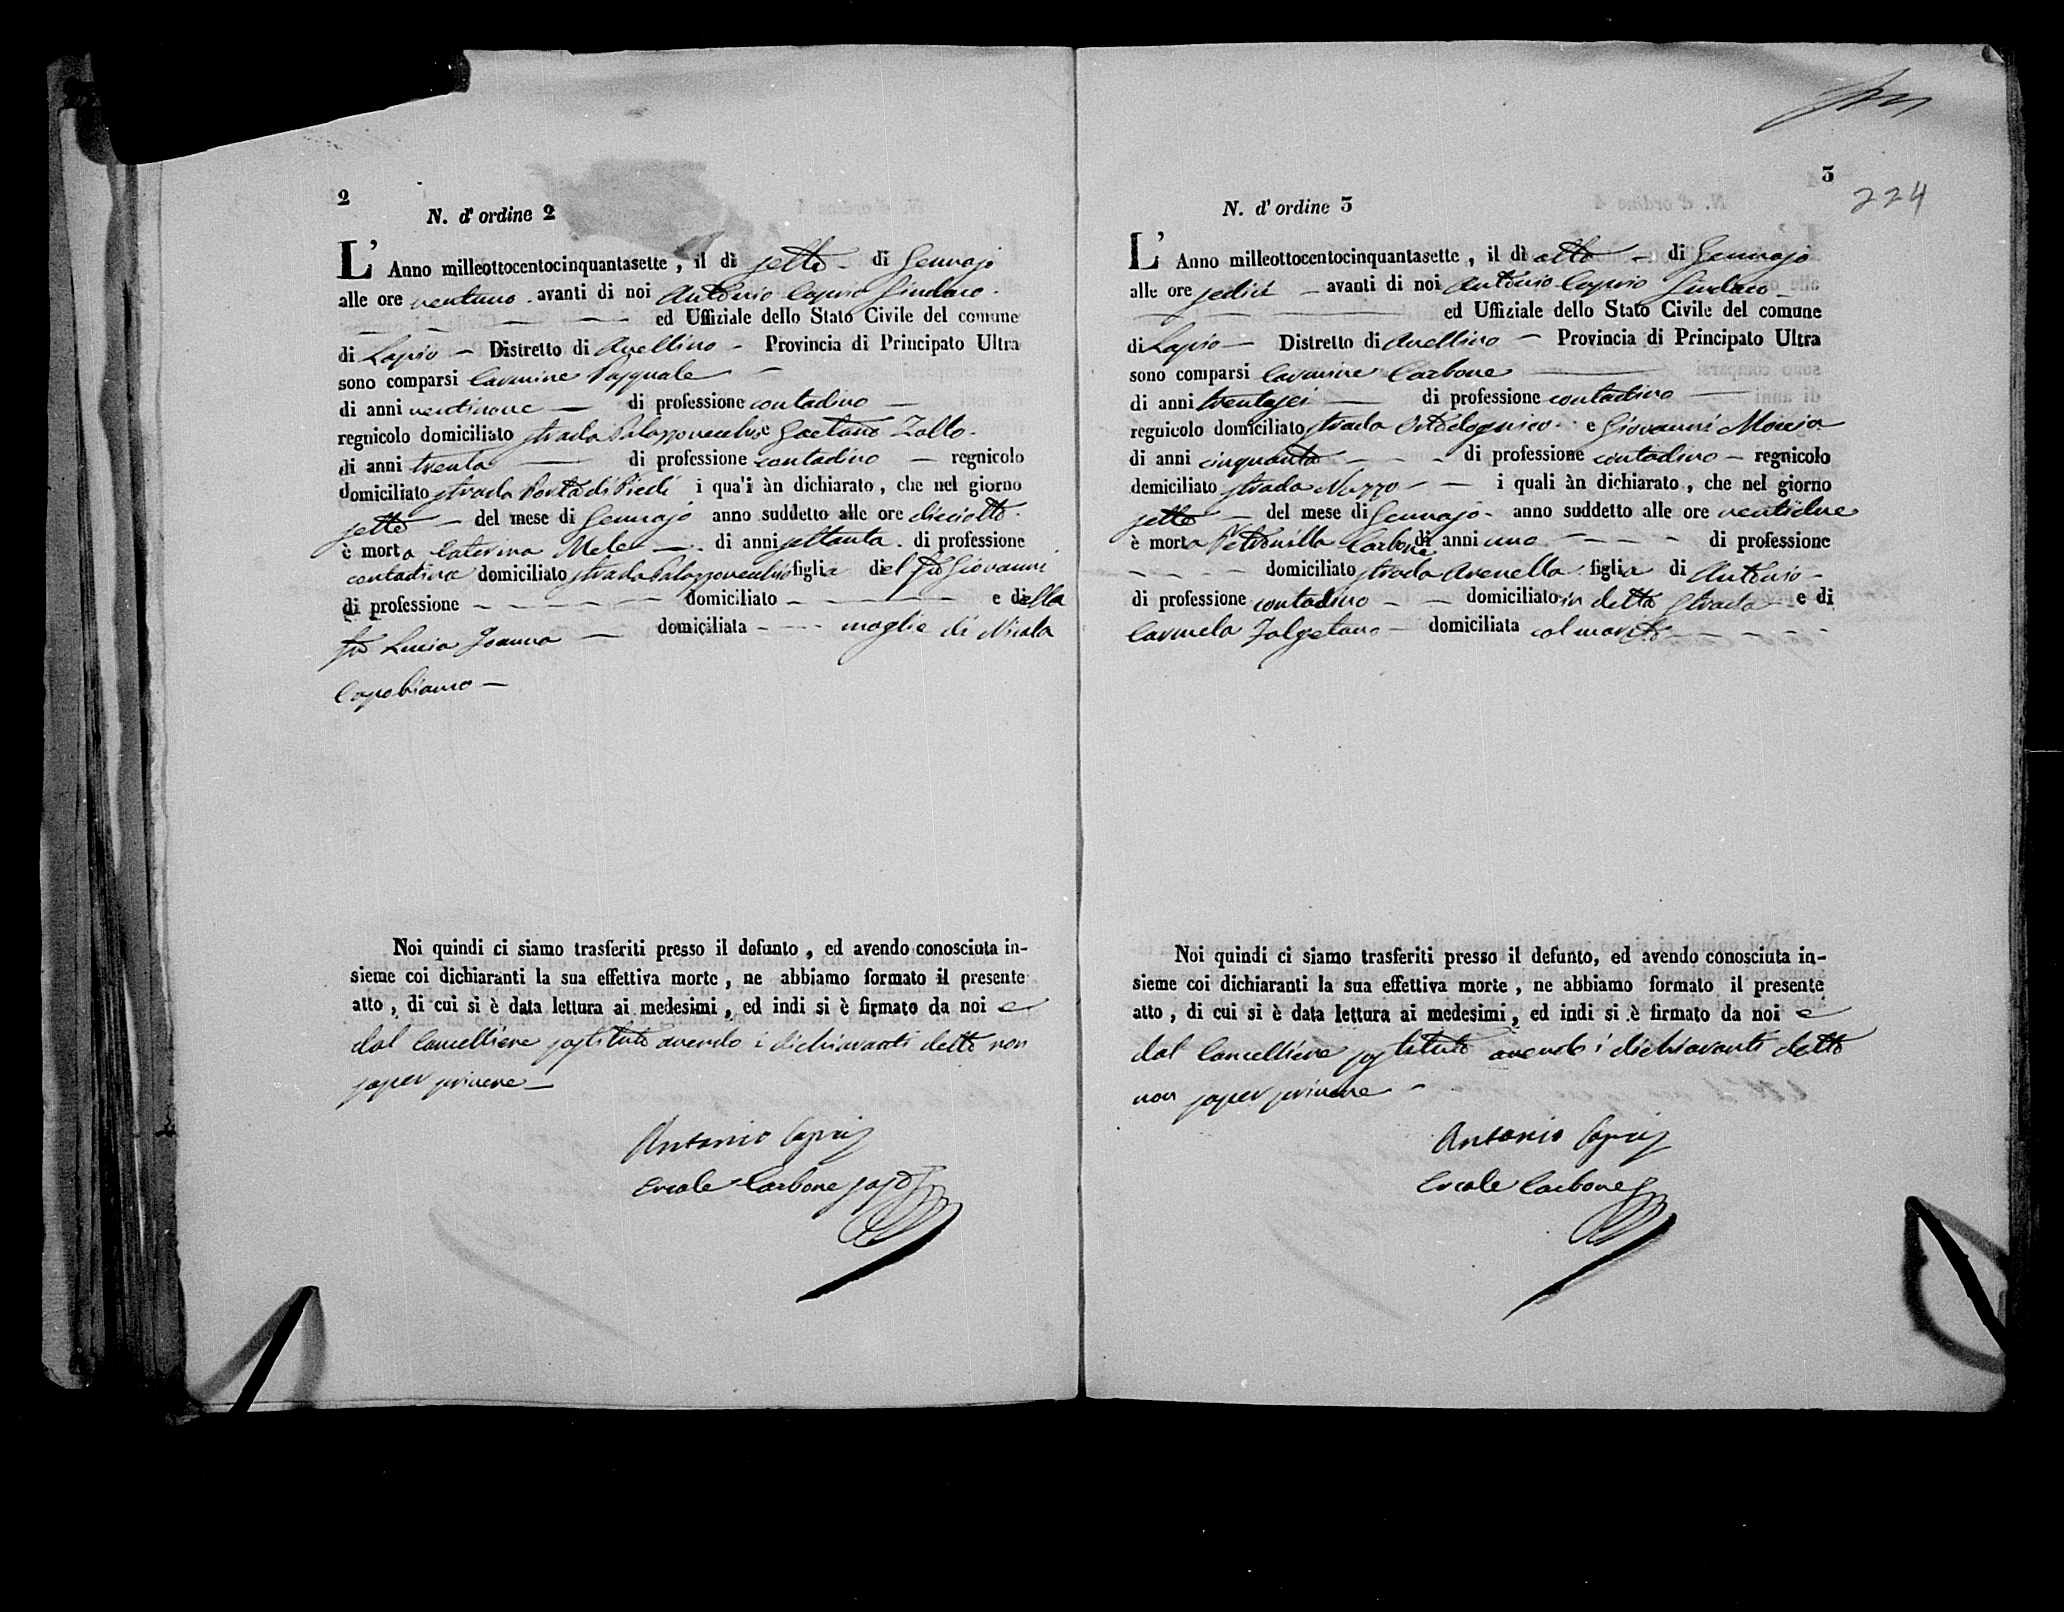 2
N. d'ordine 2
L' Anno milleottocentocinquantasette, il dì sette di Gennajo
alle ore ventuno avanti di noi Antonio Caprio Sindaco
ed Uffiziale dello Stato Civile del comune
di Lapio Distretto di Avellino Provincia di Principato Ultra
sono comparsi Carmine Pasquale
di anni ventinove di professione contadino
regnicolo domiciliato strada Palazzovecchio e Gaetano Zollo
di anni trenta di professione contadino regnicolo
domiciliato strada Porta di Piedi i qua'i àn dichiarato, che nel giorno
sette del mese di Gennajo anno suddetto alle ore dicciotto
è morta Caterina Mele di anni settanta di professione
contadina domiciliato strada Palazzovecchio figlia del fù Giovanni
di professione domiciliato e della
fù Lucia Joanna domiciliata moglie di Nicola
Capobianco
Noi quindi ci siamo trasferiti presso il defunto, ed avendo conosciuta in-
sieme coi dichiaranti la sua effettiva morte, ne abbiamo formato il presente
atto, di cui si è data lettura ai medesimi, ed indi si è firmato da noi e
dal Cancelliere sostituto avendo i dichiaranti detto non
saper scrivere
Antonio Caprio
Ercole Carbone sosto
3
224
N. d'ordine 3
L' Anno milleottocentocinquantasette, il dì otto di Gennajo
alle ore sedici avanti di noi Antonio Caprio Sindaco
ed Uffiziale dello Stato Civile del comune
di Lapio Distretto di Avellino Provincia di Principato Ultra
sono comparsi Carmine Carbone
di anni trentasei di professione contadino
regnicolo domiciliato strada e Giovanni
di anni cinquanta di professione contadino regnicolo
demiciliato strada Nuzzo i quali àn dichiarato, che nel giorno
sette del mese di Gennajo anno suddetto alle ore ventidue
è morta Petronilla Carbone di anni uno di professione
domiciliato strada Avenella figlia di Antonio
di professione contadino domiciliato in detta Strada e di
Carmela domiciliata col marito
Noi quindi ci siamo trasferiti presso il defunto, ed avendo conosciuta in-
sieme coi dichiaranti la sua effettiva morte, ne abbiamo formato il presente
atto, di cui si è data lettura ai medesimi, ed indi si è firmato da noi e
dal Cancelliere sostituto avendo i dichiaranti detto
non saper scrivere
Antonio Caprio
Ercole Carbone